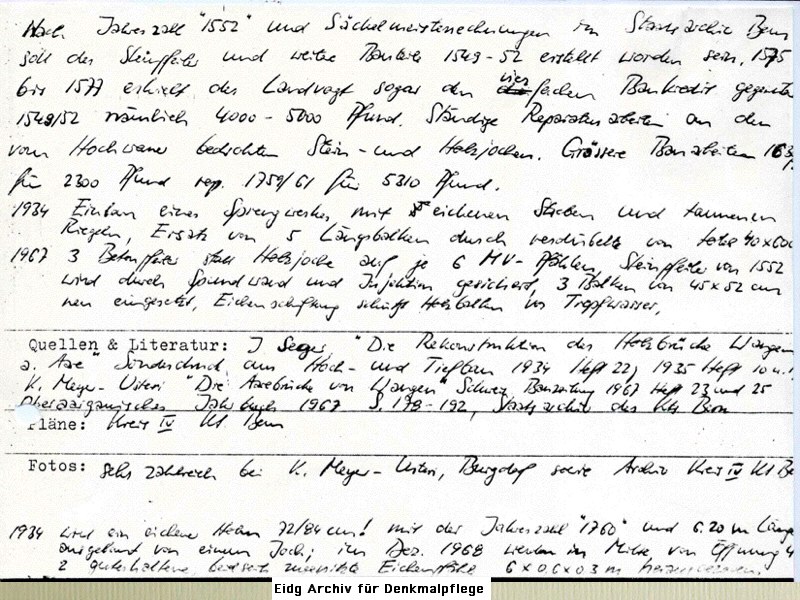 Nach Jahreszahl "1552" und Säckelmeisterrechnungen im Staatsarchiv Bern
soll der Steinpfeiler und weitere Bauten 1549-52 erstellt worden sein. 1575
bis 1577 erhielt der Landvogt sogar den vierfachen Baukredit gegenüber
1549/52 nämlich 4000-5000 Pfund. Ständige Reparaturarbeiten an den
vom Hochwasser bedrohten Stein- und Holzjochen. Grössere Bauarbeiten
für 2300 Pfund resp. 1759/61 für 5310 Pfund.
1934 Einbau eines Sprengwerkes mit eichenen Streben und tannenen
Riegeln, Ersatz von 5 Längsbalken durch verdübelte von total 40x60
1967 3 Betonpfeiler statt Holzjoche auf je 6 MV-Pfählen, Steinpfeiler von 1552
wird durch Spundwand und Injektion gesichert, 3 Balken von 45x52 cm
neu eingesetzt, Eichenschiftung schützt Holzbalken vor Tropfwasser.
Quellen & Literatur: J Seeger "Die Rekonstruktion der Holzbrücke Wangen
a. Aare" Sonderdruck aus Hoch- und Tiefbau 1934 Heft 22, 1935 Heft 10 u. 
K. Meyer-Usteri "Die Aarebrücke von Wangen" Schweiz Bauzeitung 1967 Heft 23 und 25
Oberaargauisches Jahrbuch 1967 S. 178-192, Staatsarchiv des Kts Bern
Pläne: Kreis IV Kt. Bern
Fotos: sehr zahlreich bei K. Meyer-Usteri, Burgdorf sowie Archiv Kreis IV Kt Be
1934 wird ein eichener 72/84 cm! mit der Jahreszahl "1760" und 6.20 m Länge
ausgebaut von einem Joch; im Dez. 1968 werden im Mitte von Öffnung 4
2 guterhaltene, beidseit zugespitzte Eichenpfähle 6x0.6x0.3 m
Eidg Archiv für Denkmalpflege